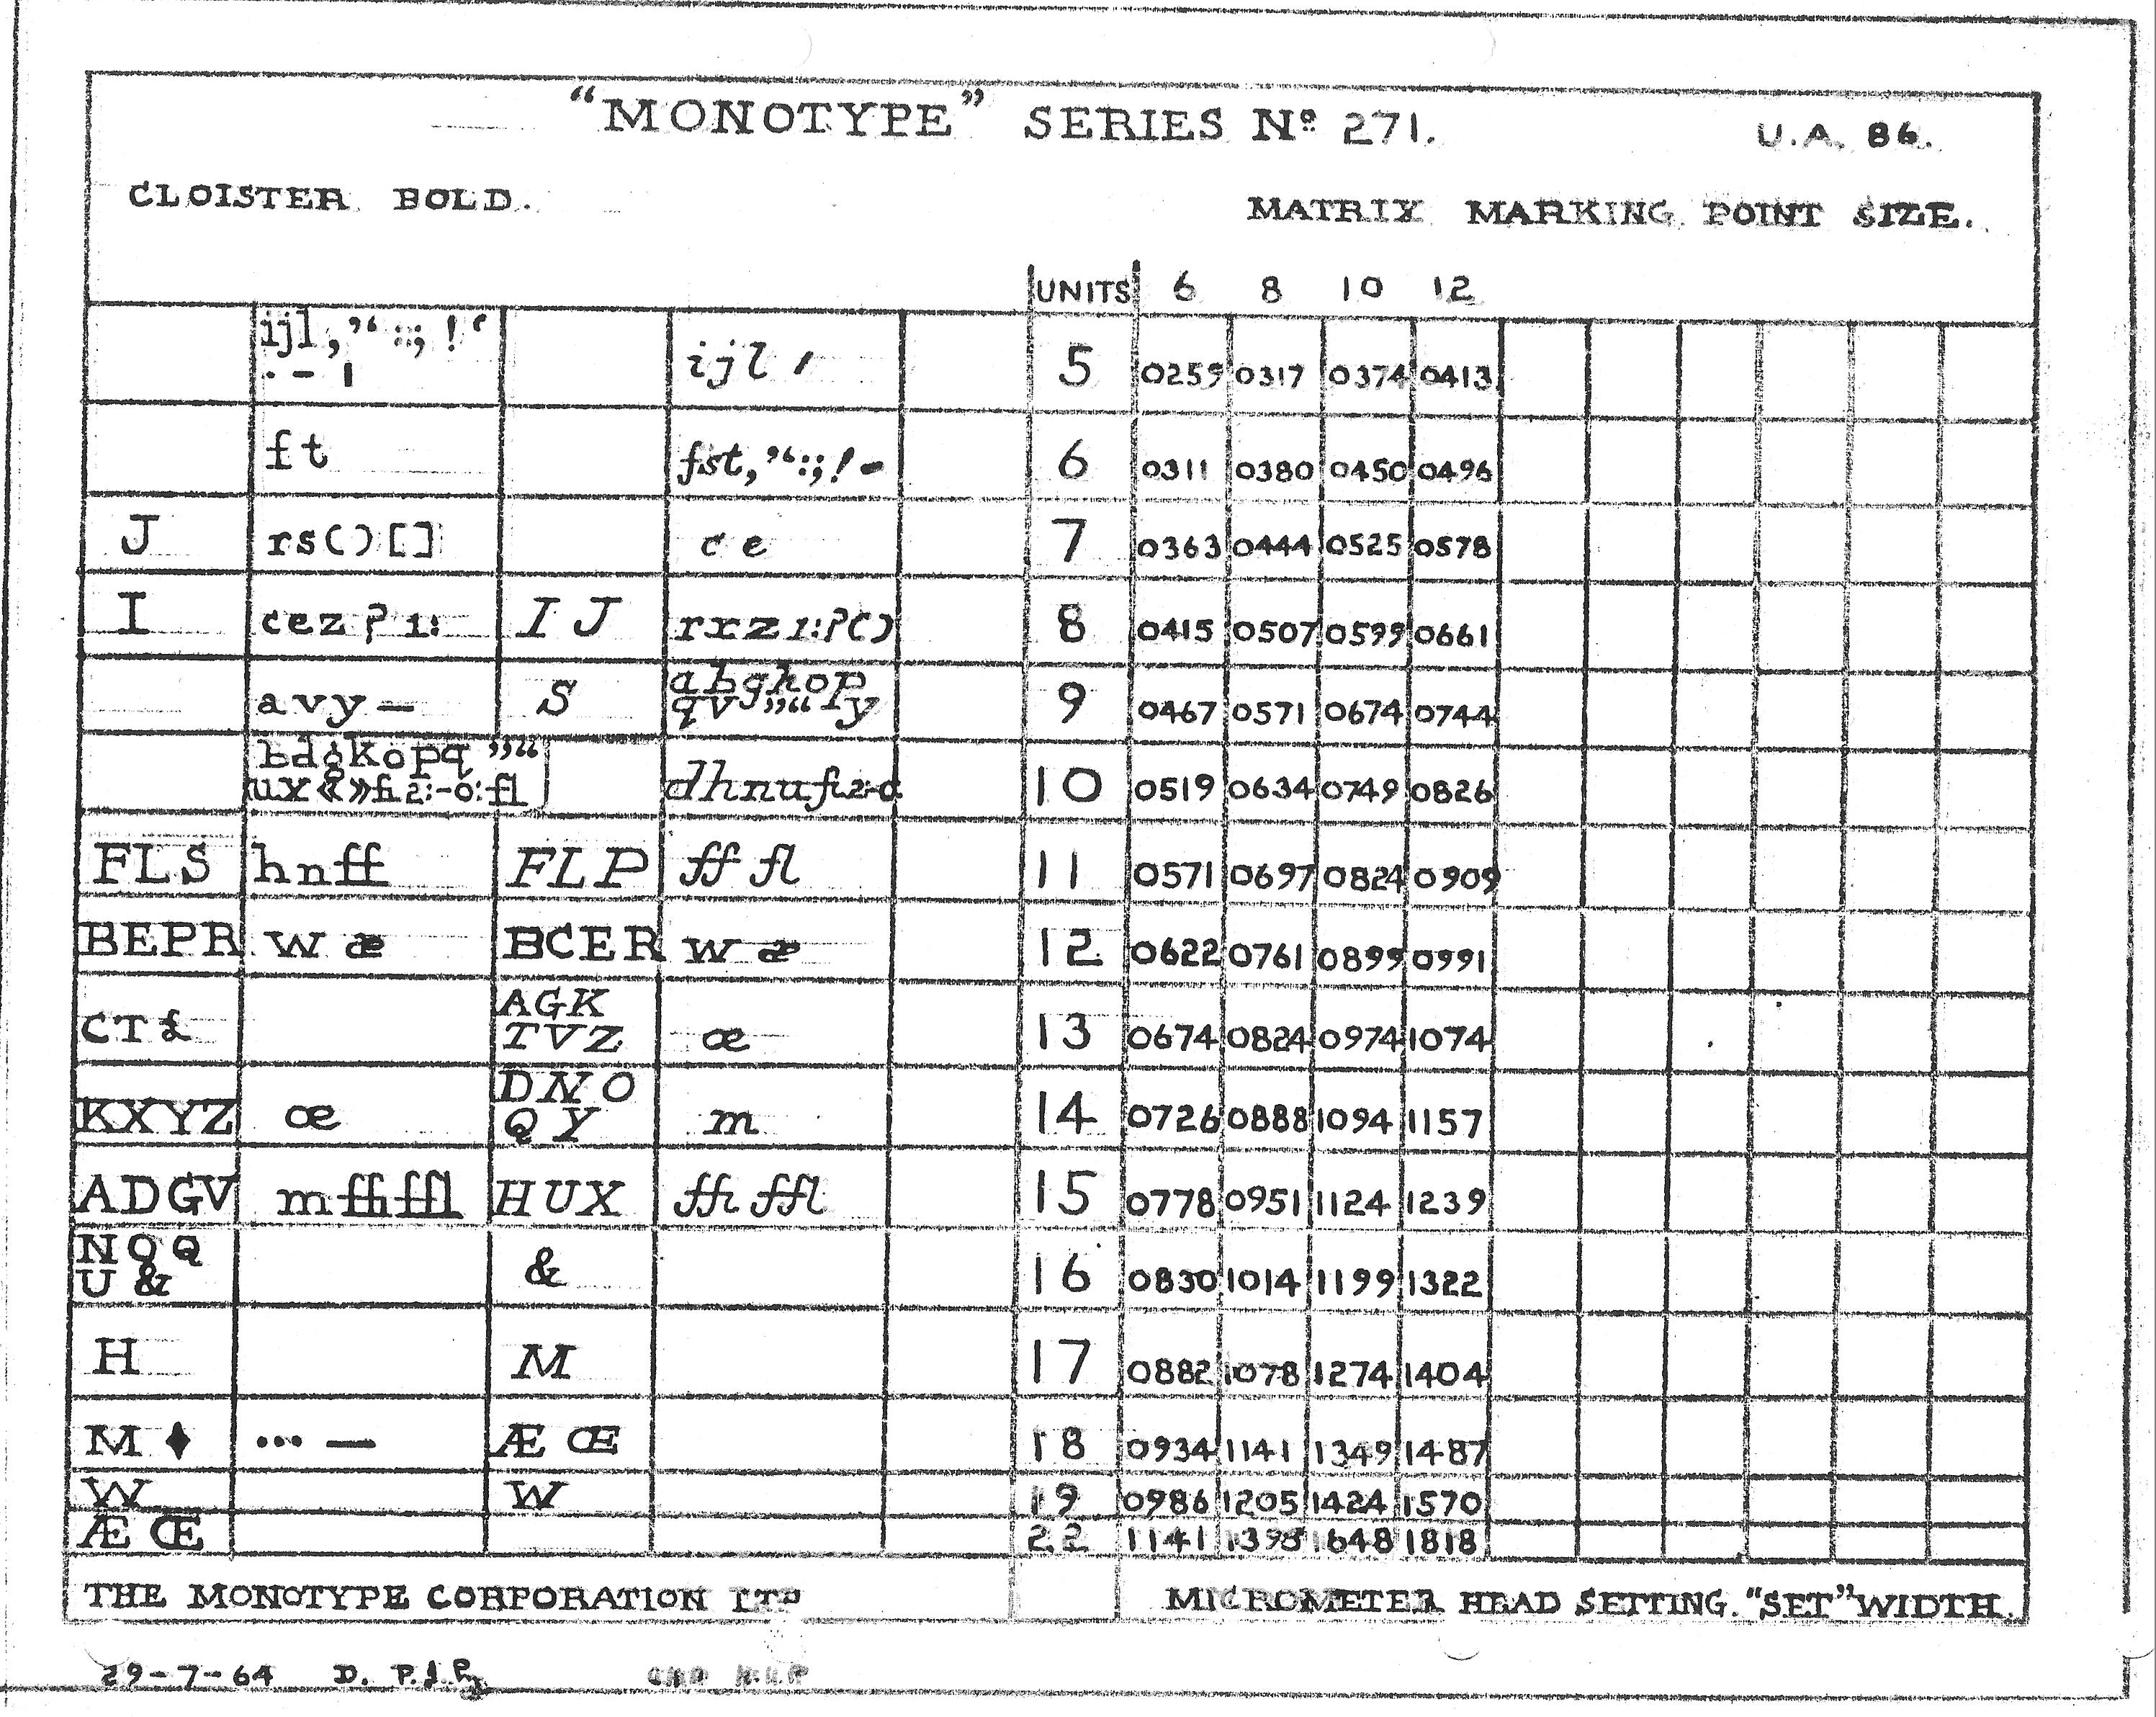 “MONOTYPE” SERIES Nº 271. U.A. 86.
CLOISTER BOLD. MATRIX MARKING POINT SIZE.
UNITS 6 8 10 12
ijl,’‘:;!‘ ijl ′ 5 0259 0317 0374 0413
· – I
ft fst,’‘:;!- 6 0311 0380 0450 0496
J rs()[] ce 7 0363 0444 0525 0578
I cez?1: IJ rxz1:?() 8 0415 0507 0599 0661
avy– S abghop 9 0467 0571 0674 0744
qv”“y
bdgkopq”“ dhnufi2-0 10 0519 0634 0749 0826
ux«»fi2:-0:fl
FLS hnff FLP ff fl 11 0571 0697 0824 0909
BEPR w æ BCER w æ 12 0622 0761 0899 0991
CT£ AGK œ 13 0674 0824 0974 1074
TVZ
KXYZ œ DNO m 14 0726 0888 1094 1157
QY
ADGV mffiffl HUX ffi ffl 15 0778 0951 1124 1239
NOQ & 16 0830 1014 1199 1322
U&
H M 17 0882 1078 1274 1404
M ♦ … — ÆŒ 18 0934 1141 1349 1487
W W 19 0986 1205 1424 1570
ÆŒ 22 1141 1395 1648 1818
THE MONOTYPE CORPORATION LTD MICROMETER HEAD SETTING. “SET” WIDTH.
29-7-64 D. P.J.P.